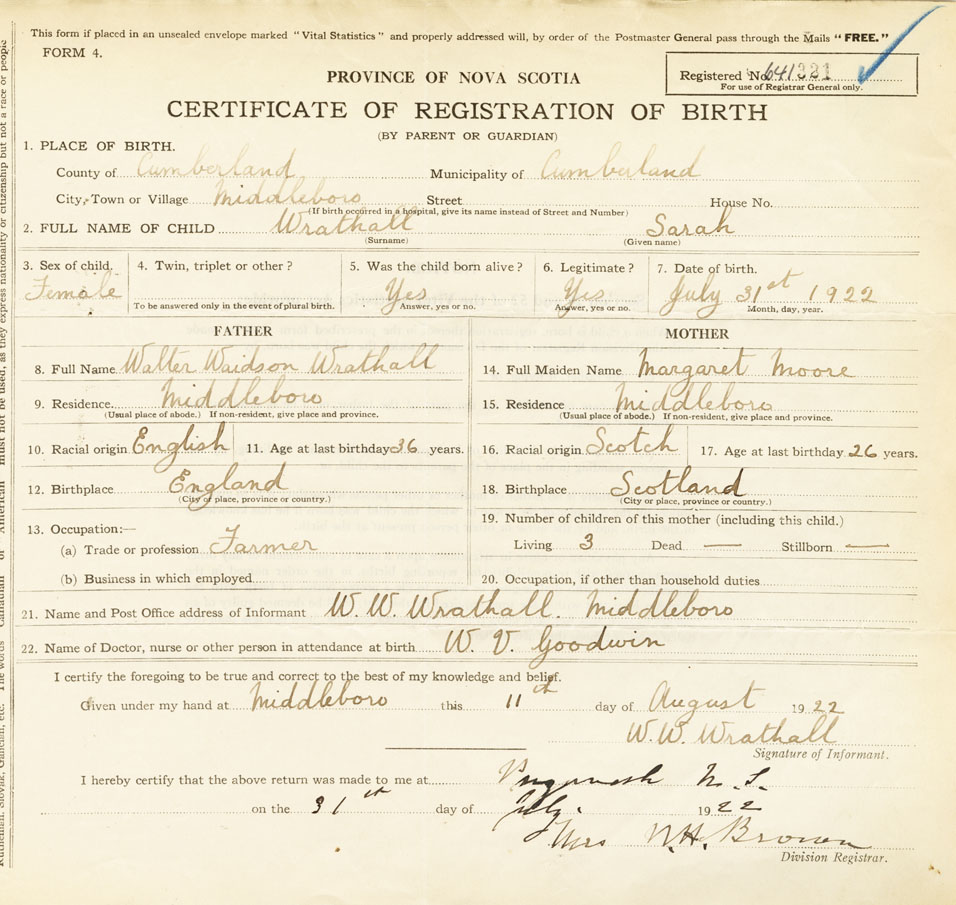 This form if placed in an unsealed envelope marked "Vital Statistics" and properly addressed will, by order of the Postmaster General pass through the Mails "FREE."
FORM 4.
PROVINCE OF NOVA SCOTIA
Registered No. 641321
For use of Registrar General only.
CERTIFICATE OF REGISTRATION OF BIRTH
(BY PARENT OR GUARDIAN)
1. PLACE OF BIRTH.
County of Cumberland Municipality of Cumberland
City, Town or Village Middleboro Street House No.
(If birth occurred in a hospital, give its name instead of Street and Number)
2. FULL NAME OF CHILD Wrathall Sarah
(Surname) (Given name)
3. Sex of child. 4. Twin, triplet or other? 5. Was the child born alive? 6. Legitimate? 7. Date of birth.
Female Yes Yes July 31st 1922
To be answered only in the event of plural birth. Answer, yes or no. Answer, yes or no. Month, day, year.
FATHER MOTHER
8. Full Name Walter Waidson Wrathall 14. Full Maiden Name Margaret Moore
9. Residence Middleboro 15. Residence Middleboro
(Usual place of abode.) If non-resident, give place and province. (Usual place of abode.) If non-resident, give place and province.
10. Racial origin English 11. Age at last birthday 36 years. 16. Racial origin Scotch 17. Age at last birthday 26 years.
12. Birthplace England 18. Birthplace Scotland
(City or place, province or country.) (City or place, province or country.)
13. Occupation:— 19. Number of children of this mother (including this child.)
(a) Trade or profession Farmer Living 3 Dead — Stillborn —
(b) Business in which employed 20. Occupation, if other than household duties
21. Name and Post Office address of Informant W. W. Wrathall. Middleboro
22. Name of Doctor, nurse or other person in attendance at birth W. V. Goodwin
I certify the foregoing to be true and correct to the best of my knowledge and belief.
Given under my hand at Middleboro this 11th day of August 1922
W. W. Wrathall
Signature of Informant.
I hereby certify that the above return was made to me at N. S.
on the 31th day of July. 1922
Mrs N. H. Brown
Division Registrar.
must not be used, as they express nationality or citizenship but not a race or people
Ruthenian, Slovak, Galician, etc. The words Canadian or American